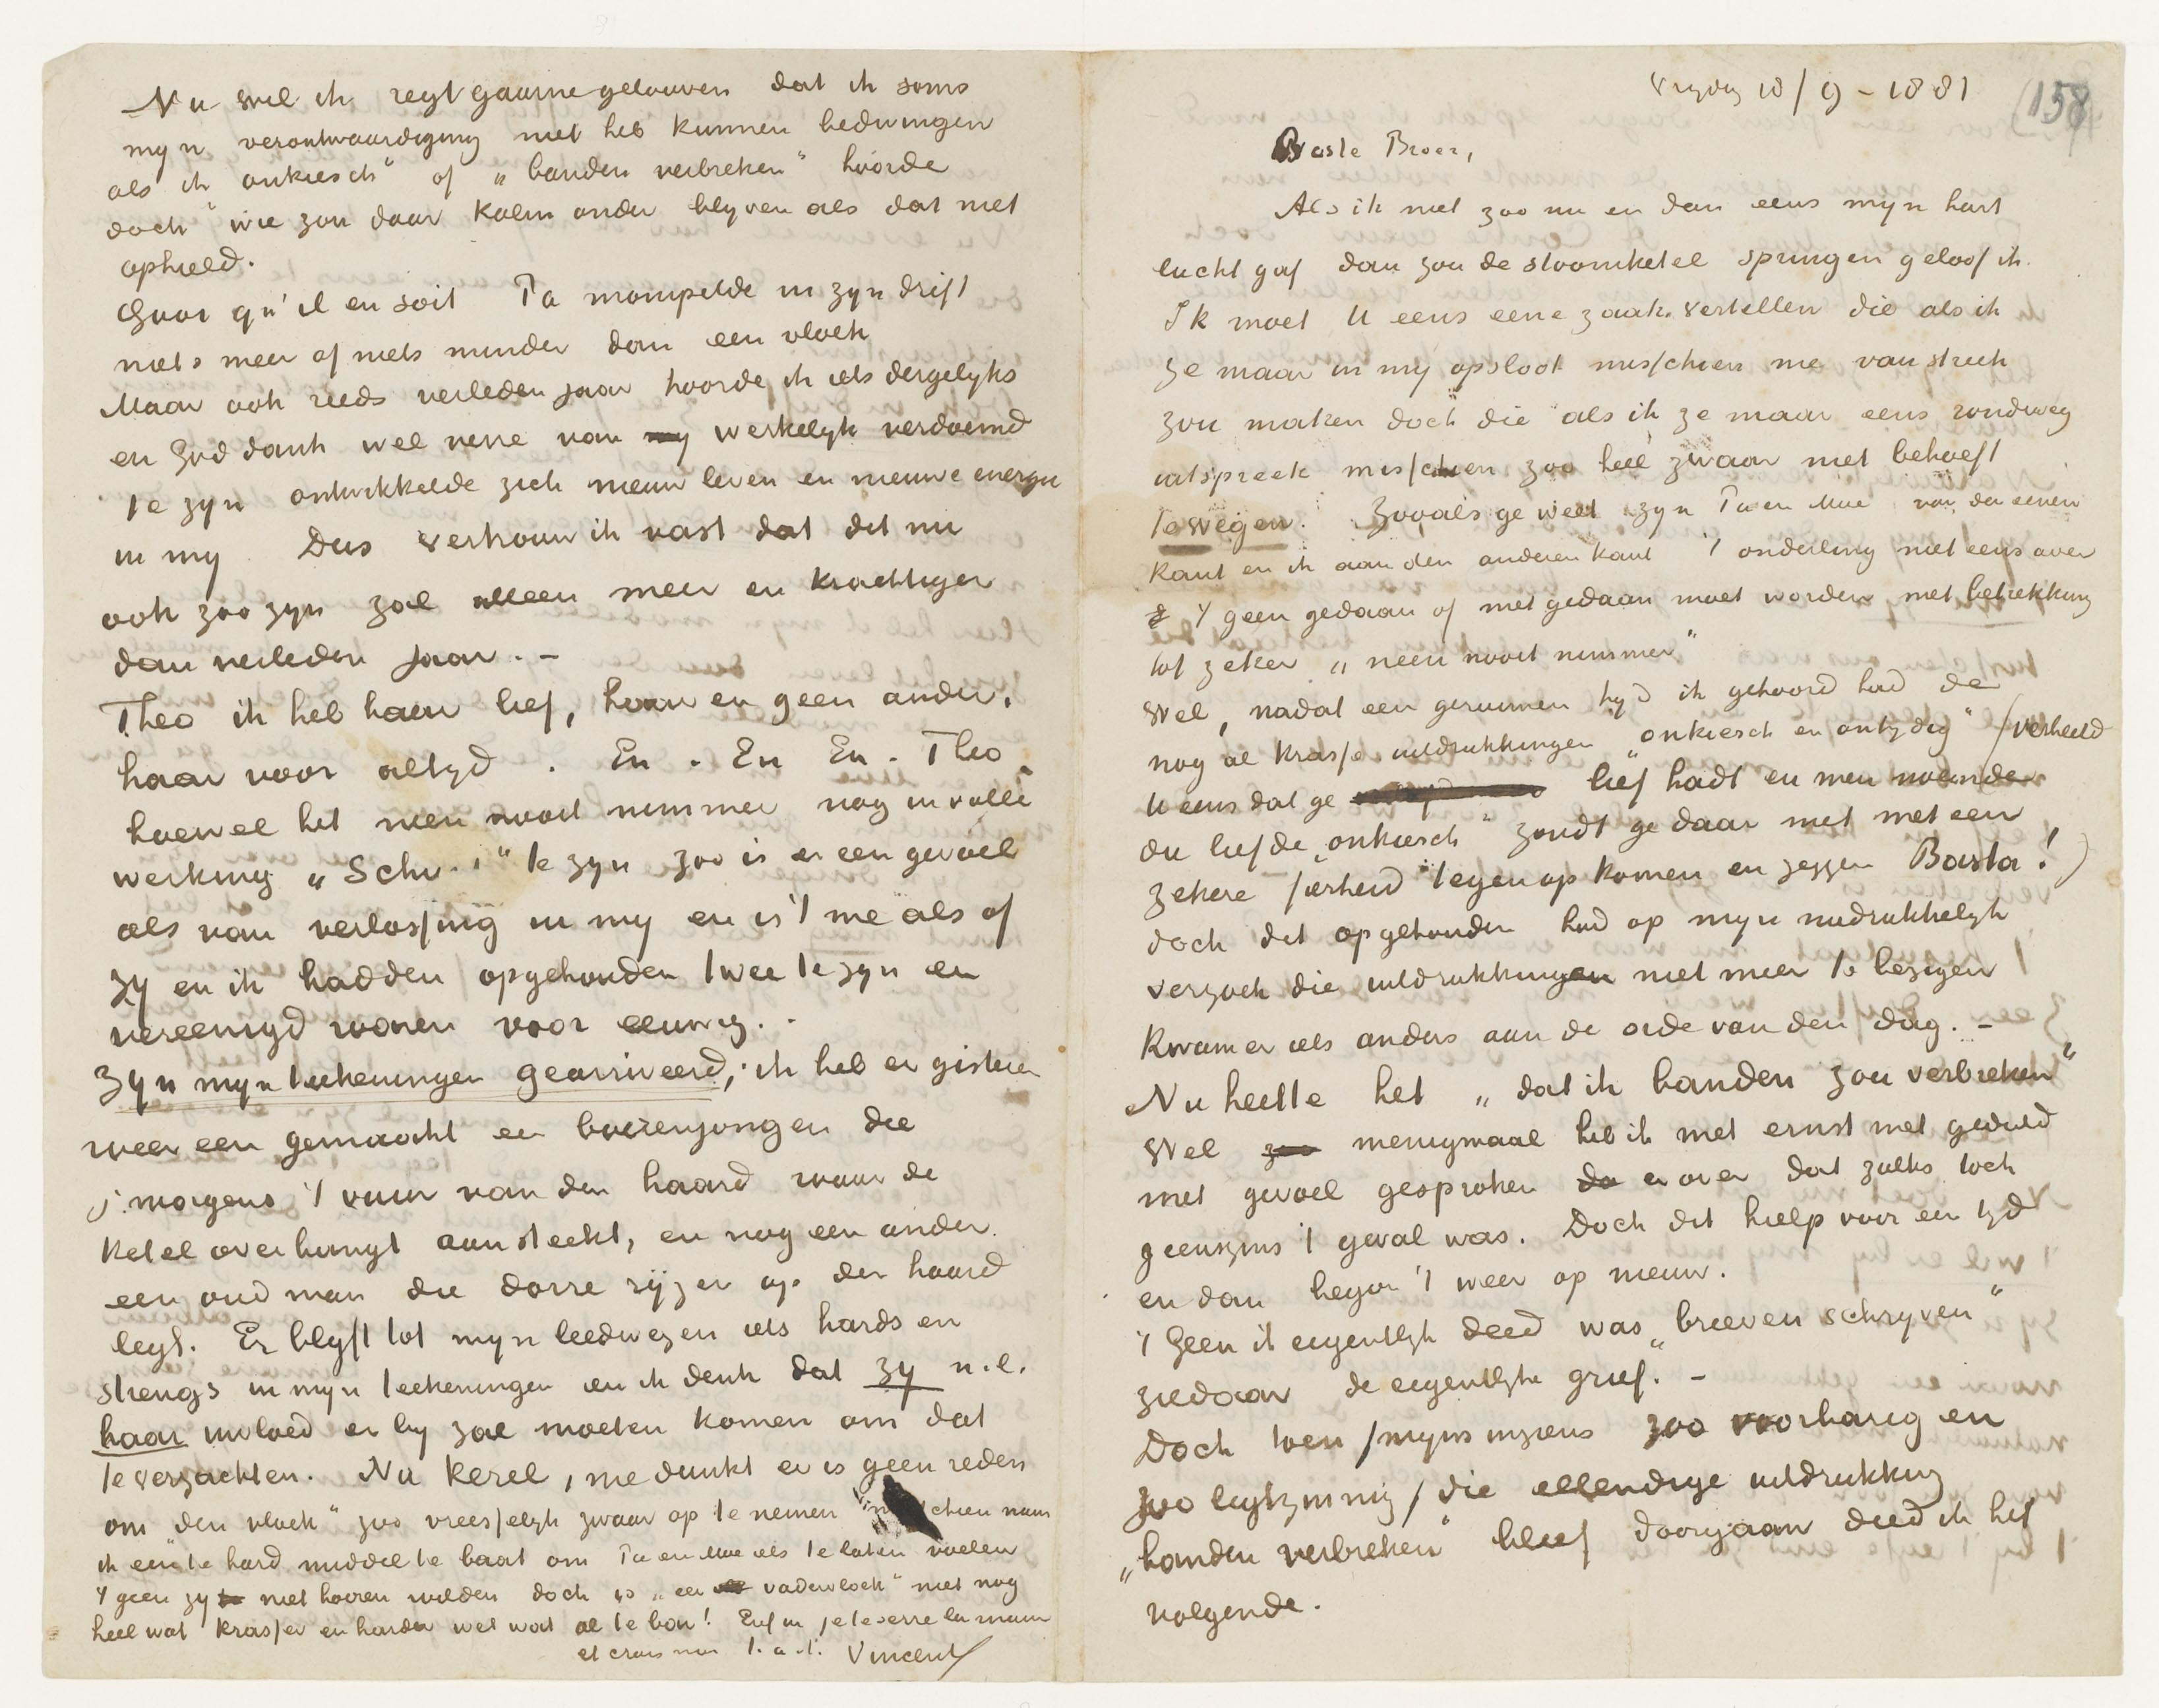 Vrydag 18/9 - 1881
(158)
Beste Broer,
Als ik niet zoo nu en dan eens myn hart
lucht gaf dan zou de stoomketel springen geloof ik.
Ik moet U eens eene zaak vertellen die als ik
ze maar in my opsloot misschien me van streek
zou maken doch die als ik ze maar eens rondweg
uitspreek misschien zoo heel zwaar niet behoeft
te wegen. Zooals ge weet zyn Pa en Moe van den eenen
kant en ik aan den anderen kant 't onderling niet eens over
't geen gedaan of niet gedaan moet worden met betrekking
tot zeker „neen nooit nimmer”
Wel, nadat een geruimen tyd ik gehoord had de
nog al krasse uitdrukkingen „onkiesch en ontydig” (verbeeld
U eens dat ge lief hadt en men noemde
die liefde „onkiesch” zoudt ge daar niet met een
zekere fierheid tegenop komen en zeggen Basta!)
doch dit opgehouden had op myn nadrukkelyk
verzoek die uitdrukkingen niet meer te bezigen
kwam er iets anders aan de orde van den dag. -
Nu heette het „dat ik banden zou verbreken”
Wel zoo menigmaal heb ik met ernst met geduld
met gevoel gesproken er over dat zulks toch
geenszins 't geval was. Doch dit hielp voor een tyd
en dan begon 't weer op nieuw.
't Geen ik eigentlyk deed was „brieven schryven”
ziedaar de eigentlyke grief. -
Doch toen /myns inziens zoo voorbarig en
zoo ligtzinnig/ die ellendige uitdrukking
„banden verbreken” bleef doorgaan deed ik het
volgende.
Nu wil ik regt gaarne gelooven dat ik soms
myn verontwaardiging niet heb kunnen bedwingen
als ik „onkiesch” of „banden verbreken” hoorde
doch wie zou daar kalm onder blyven als dat niet
ophield.
Quoi qu'il en soit Pa mompelde in zyn drift
niets meer of niets minder dan een vloek
Maar ook reeds verleden jaar hoorde ik iets dergelyks
en God dank wel verre van my werkelyk verdoemd
te zyn ontwikkelde zich nieuw leven en nieuwe energie
in my. Dus vertrouw ik vast dat dit nu
ook zoo zyn zal alleen meer en krachtiger
dan verleden jaar. -
Theo ik heb haar lief, haar en geen ander,
haar voor altyd. En. En En. Theo
hoewel het neen nooit nimmer nog in volle
werking „Schn..t” te zyn zoo is er een gevoel
als van verlossing in my en is 't me als of
zy en ik hadden opgehouden twee te zyn en
vereenigd waren voor eeuwig. -
Zyn myn teekeningen gearriveerd, ik heb er gisteren
weer een gemaakt een boerenjongen die
s'morgens 't vuur van den haard waar de
ketel over hangt aansteekt, en nog een ander
een oud man die dorre ryzer op den haard
legt. Er blyft tot myn leedwezen iets hards en
strengs in myn teekeningen en ik denk dat zy n.l.
haar invloed er by zal moeten komen om dat
te verzachten. Nu kerel, me dunkt er is geen reden
om „den vloek” zoo vreesselyk zwaar op te nemen misschien nam
ik een te hard middel te baat om Pa en Moe iets te laten voelen
't geen zy niet hooren wilden doch is „een vadervloek” niet nog
heel wat krasser en harder wel wat al te bon! Enfin je te serre la main
et crois moi t. à t. Vincent